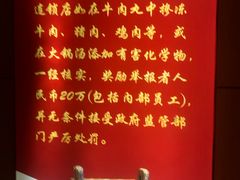 连锁店如在牛肉丸中掺冻
牛肉、猪肉、鸡肉等，或
在火锅汤添加有害化学物，
一经核实，奖励举报者人
民币20万(包括内部员工)，
并无条件接受政府监管部
门严厉处罚。